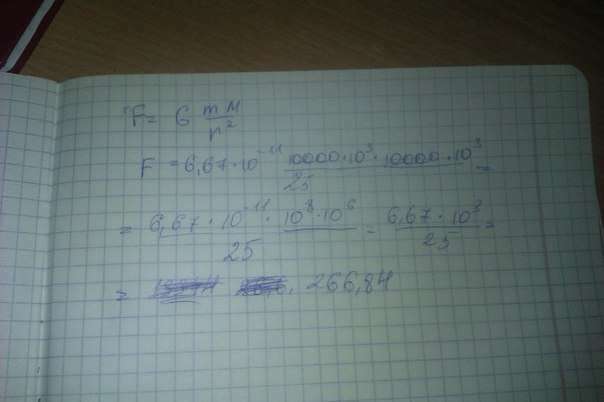 F = G mM/r²
F = 6,67·10⁻¹¹ 10000·10³·10000·10³/25 =
= 6,67·10⁻¹¹·10⁸·10⁶/25 = 6,67·10³/25 =
= 266,84